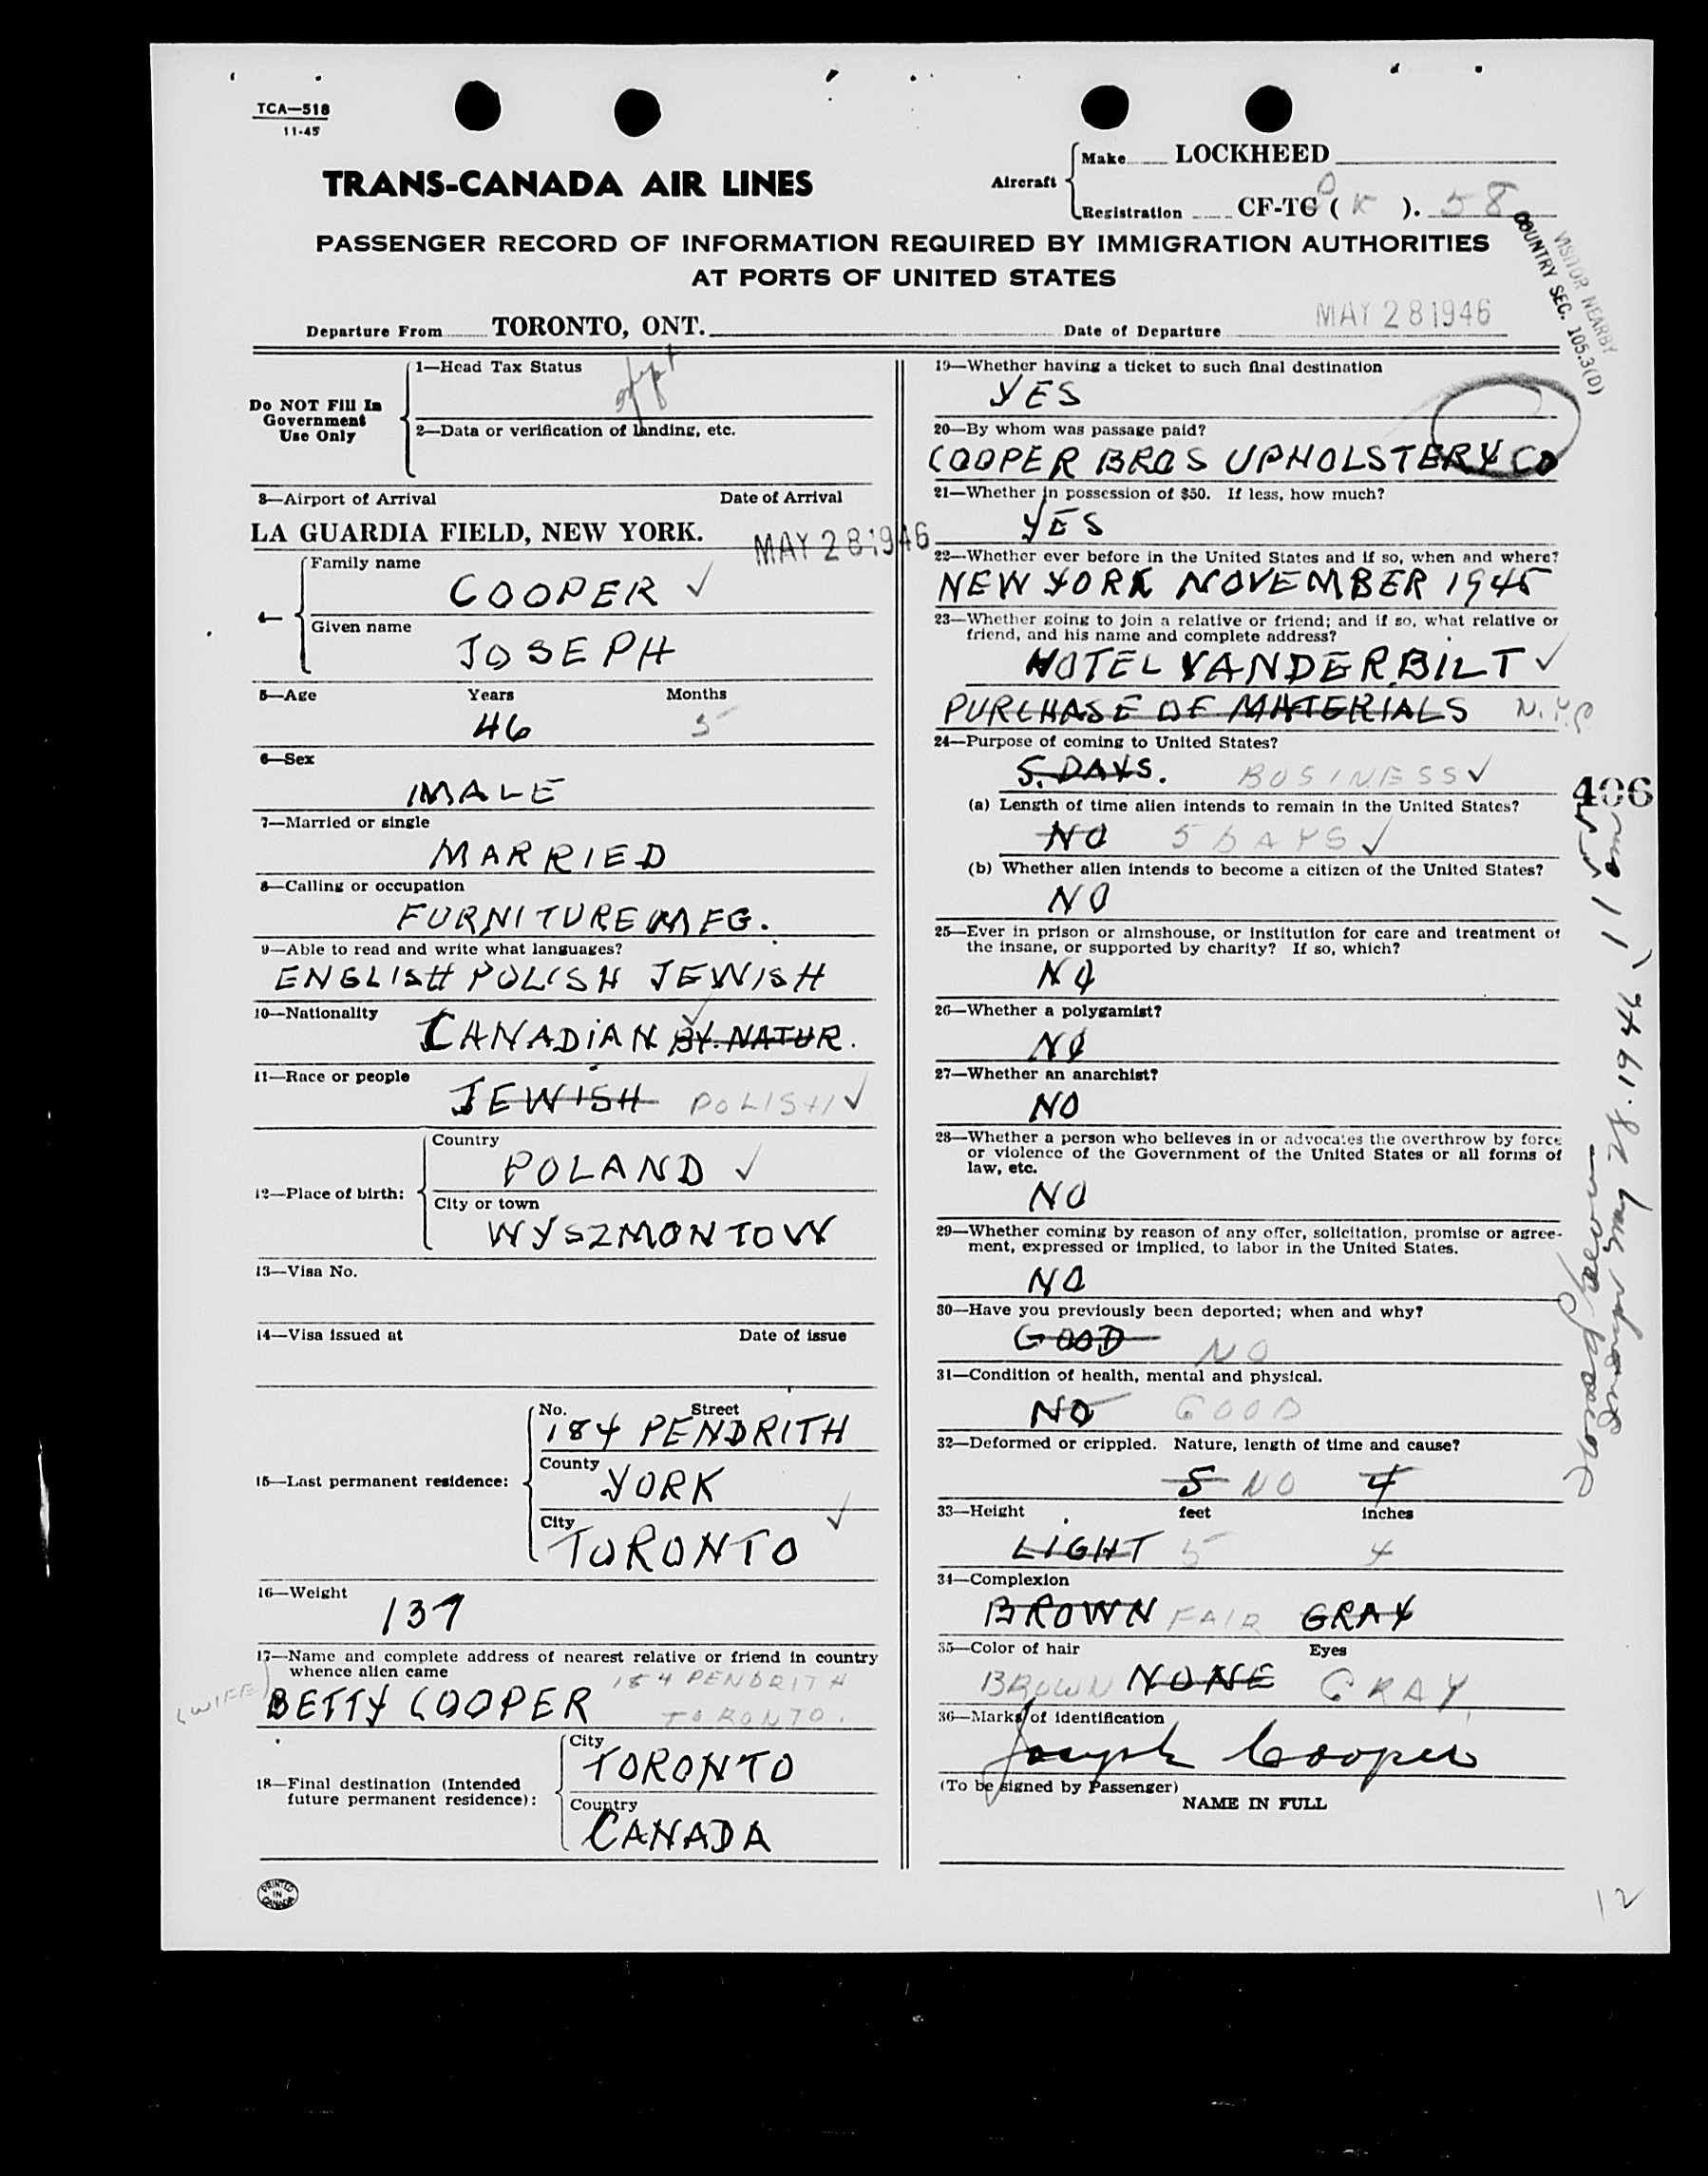 TCA—518
11-45
TRANS-CANADA AIR LINES
Aircraft
Make LOCKHEED
Registration CF-TG ( K ). 58
PASSENGER RECORD OF INFORMATION REQUIRED BY IMMIGRATION AUTHORITIES
AT PORTS OF UNITED STATES
VISITOR NEARBY
COUNTRY SEC. 105.3(D)
Departure From TORONTO, ONT. Date of Departure MAY 28 1946
Do NOT Fill In
Government
Use Only
1—Head Tax Status
2—Data or verification of landing, etc.
3—Airport of Arrival Date of Arrival
LA GUARDIA FIELD, NEW YORK. MAY 28 1946
4—
Family name
COOPER ✓
Given name
JOSEPH
5—Age Years Months
46 5
6—Sex
MALE
7—Married or single
MARRIED
8—Calling or occupation
FURNITURE MFG.
9—Able to read and write what languages?
ENGLISH POLISH JEWISH
10—Nationality
CANADIAN BY. NATUR.
11—Race or people
JEWISH POLISH ✓
12—Place of birth:
Country
POLAND ✓
City or town
WYSZMONTOW
13—Visa No.
14—Visa issued at Date of issue
15—Last permanent residence:
No. Street
184 PENDRITH
County
YORK
City
TORONTO ✓
16—Weight
137
17—Name and complete address of nearest relative or friend in country
whence alien came
184 PENDRITH
(WIFE) BETTY COOPER TORONTO.
18—Final destination (Intended
future permanent residence):
City
TORONTO
Country
CANADA
PRINTED
IN
CANADA
19—Whether having a ticket to such final destination
YES
20—By whom was passage paid?
COOPER BROS UPHOLSTERY CO
21—Whether in possession of $50. If less, how much?
YES
22—Whether ever before in the United States and if so, when and where?
NEW YORK NOVEMBER 1945
23—Whether going to join a relative or friend; and if so, what relative or
friend, and his name and complete address?
HOTEL VANDERBILT ✓
PURCHASE OF MATERIALS N.Y.C
24—Purpose of coming to United States?
5. DAYS. BUSINESS ✓
(a) Length of time alien intends to remain in the United States?
NO 5 DAYS ✓
(b) Whether alien intends to become a citizen of the United States?
NO
25—Ever in prison or almshouse, or institution for care and treatment of
the insane, or supported by charity? If so, which?
NO
26—Whether a polygamist?
NO
27—Whether an anarchist?
NO
28—Whether a person who believes in or advocates the overthrow by force
or violence of the Government of the United States or all forms of
law, etc.
NO
29—Whether coming by reason of any offer, solicitation, promise or agree-
ment, expressed or implied, to labor in the United States.
NO
30—Have you previously been deported; when and why?
GOOD NO
31—Condition of health, mental and physical.
NO GOOD
32—Deformed or crippled. Nature, length of time and cause?
5 NO 4
33—Height feet inches
LIGHT 5 4
34—Complexion
BROWN FAIR GRAY
35—Color of hair Eyes
BROWN NONE GRAY
36—Marks of identification
Joseph Cooper
(To be signed by Passenger)
NAME IN FULL
406
May 28. 1946
12